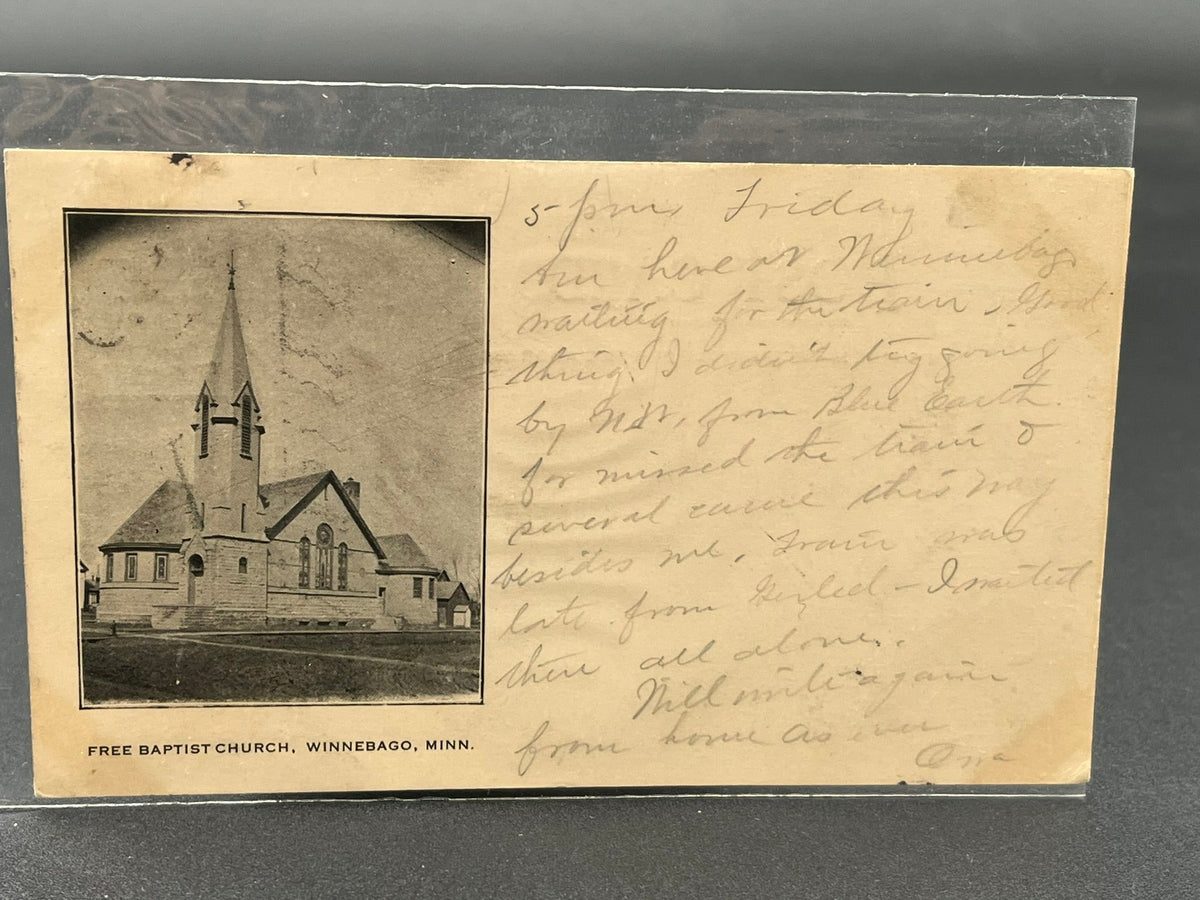 5 pm, Friday
Am here at Winnebago
waiting for the train, Good
thing I didn't try going
by from Blue Earth.
for missed the train &
several came this way
besides me, Train was
late from - I waited
there all alone.
Will write again
from home As ever
FREE BAPTIST CHURCH, WINNEBAGO, MINN.